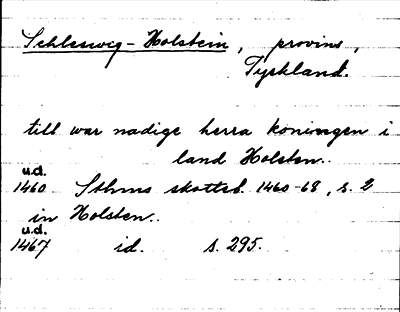 Schleswig-Holstein, provins,
Tyskland.
till war nadige herra koningen i
land Holsten..
u.d.
1460 Sthms skottsb. 1460-68, s. 2
in Holsten..
u.d.
1467 id. s. 295.